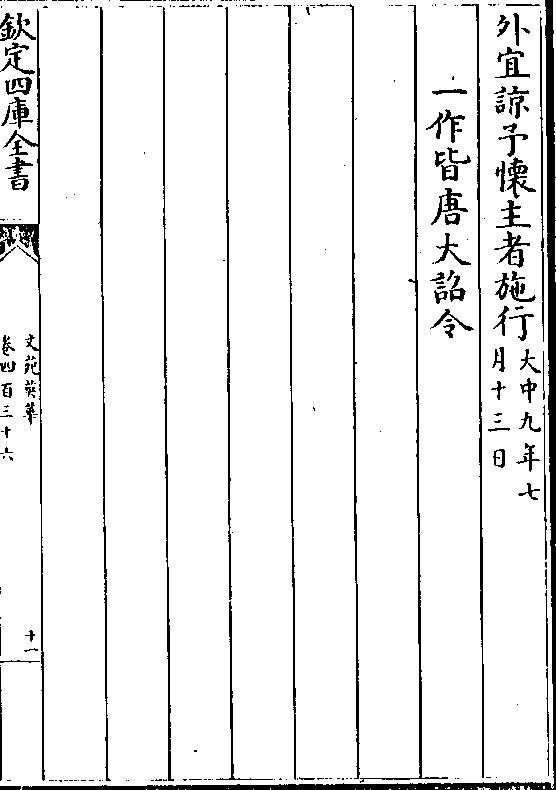 外宜諒予懷主者施行大中九年七
月十三日
一作皆唐大詔令
欽定四庫全書
文苑英華
卷四百三十六
十一